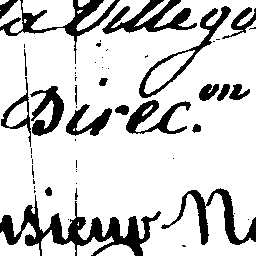 la Villego
Direc.on
nsieur No